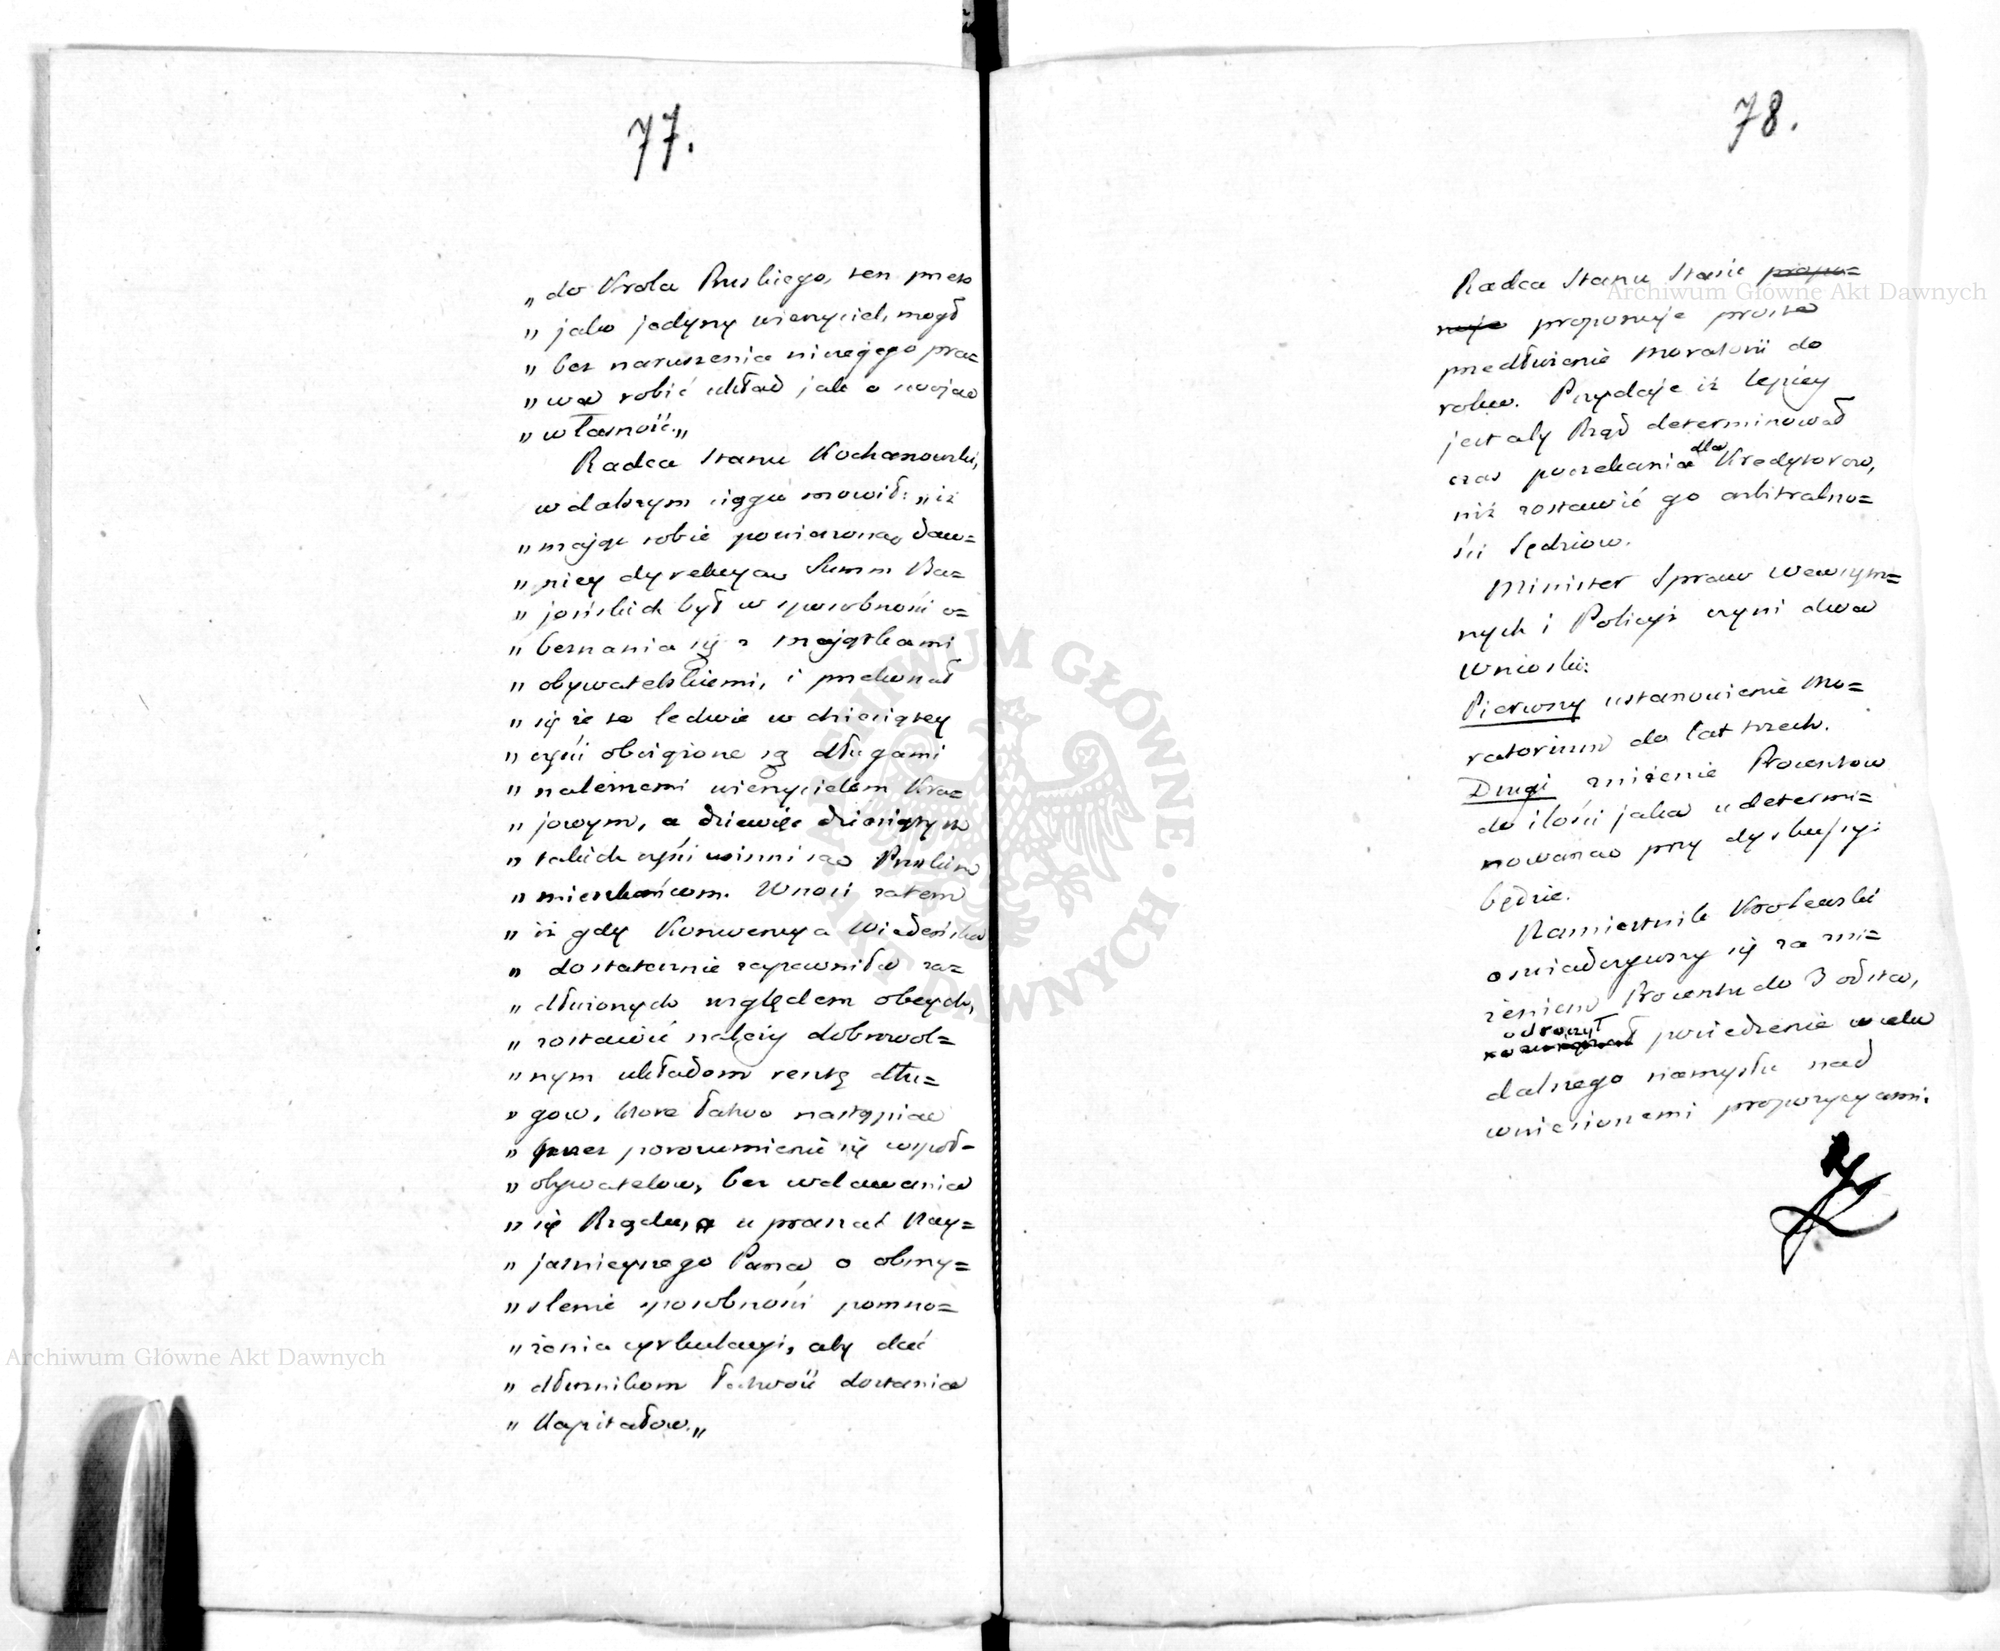 77.
„ do Krola Pruskiego, ten przeto
„ jako jedyny wierzyciel, mogł
„ bez naruszenia niczyjego pra=
„ wa robić układ jak o swoją
„ własność.„
Radca Stanu Kochanowski,
w dalszym ciągu mowił: „iż
„ mając sobie powierzoną daw=
„ niey dyrekcyą Summ Ba=
„ jońskich był w sposobności o=
„ beznania się z majątkami
„ obywatelskiemi, i przekonał
„ się że te ledwie w dziesiątey
„ części obciążone są długami
„ należnemi wierzycielom Kra=
„ jowym, a dziewięć dziesiątych
„ takich części winni są Pruskim
„ mieszkańcom. Wnosi zatem
„ iż gdy Konwencya Wiedeńska
„ dostatecznie zapewniła za=
„ dłużonych względem obcych,
„ zostawić należy dobrowol=
„ nym układom resztę dłu=
„ gow, ktore łatwo nastąpią
„ przez porozumienie się wspoł=
„ obywatelow, bez wdawania
„ się Rządu, a upraszać Nay=
„ jaśnieyszego Pana o obmy=
„ slenie sposobności pomno=
„ żenia cyrkulacyi, aby dać
„ dłużnikom łatwość dostania
„ Kapitałow.„
78.
Radca Stanu Stasic propo=
nuje proponuje proste
przedłużenie moratorii do
roku. Przydaje iż lepiey
jest aby Rząd determinował
czas poczekania dla Kredytorow,
niż zostawić go arbitralno=
ści Sędziow.
Minister Spraw Wewnętrz=
nych i Policyi czyni dwa
wnioski:
Pierwszy ustanowienie Mo=
ratorium do lat trzech.
Drugi zniżenie Procentow
do ilości jaka udetermi=
nowana przy dyskussyi
będzie.
Namiestnik Krolewski
oswiadczywszy się za zni=
żeniem Procentu do 3 od sta,
odroczył posiedzenie w celu
dalszego namysłu nad
wniesionemi propozycyami.
Archiwum Główne Akt Dawnych
Archiwum Główne Akt Dawnych
ARCHIWUM GŁÓWNE AKT DAWNYCH